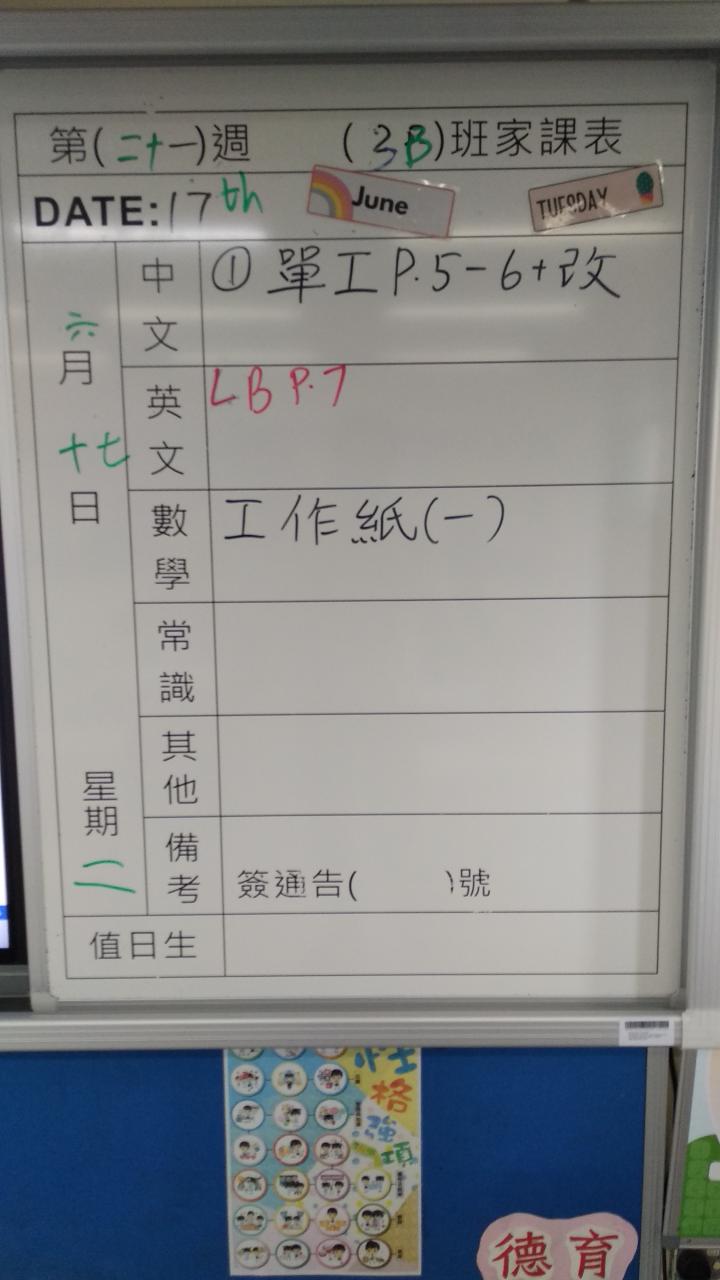 第(二十一)週 (3B)班家課表
DATE: 17th June TUESDAY
六月十七日 星期二
中文 ① 單工 P.5-6+改
英文 LB P.7
數學 工作紙(一)
常識
其他
備考 簽通告( )號
值日生
性格強項
德育